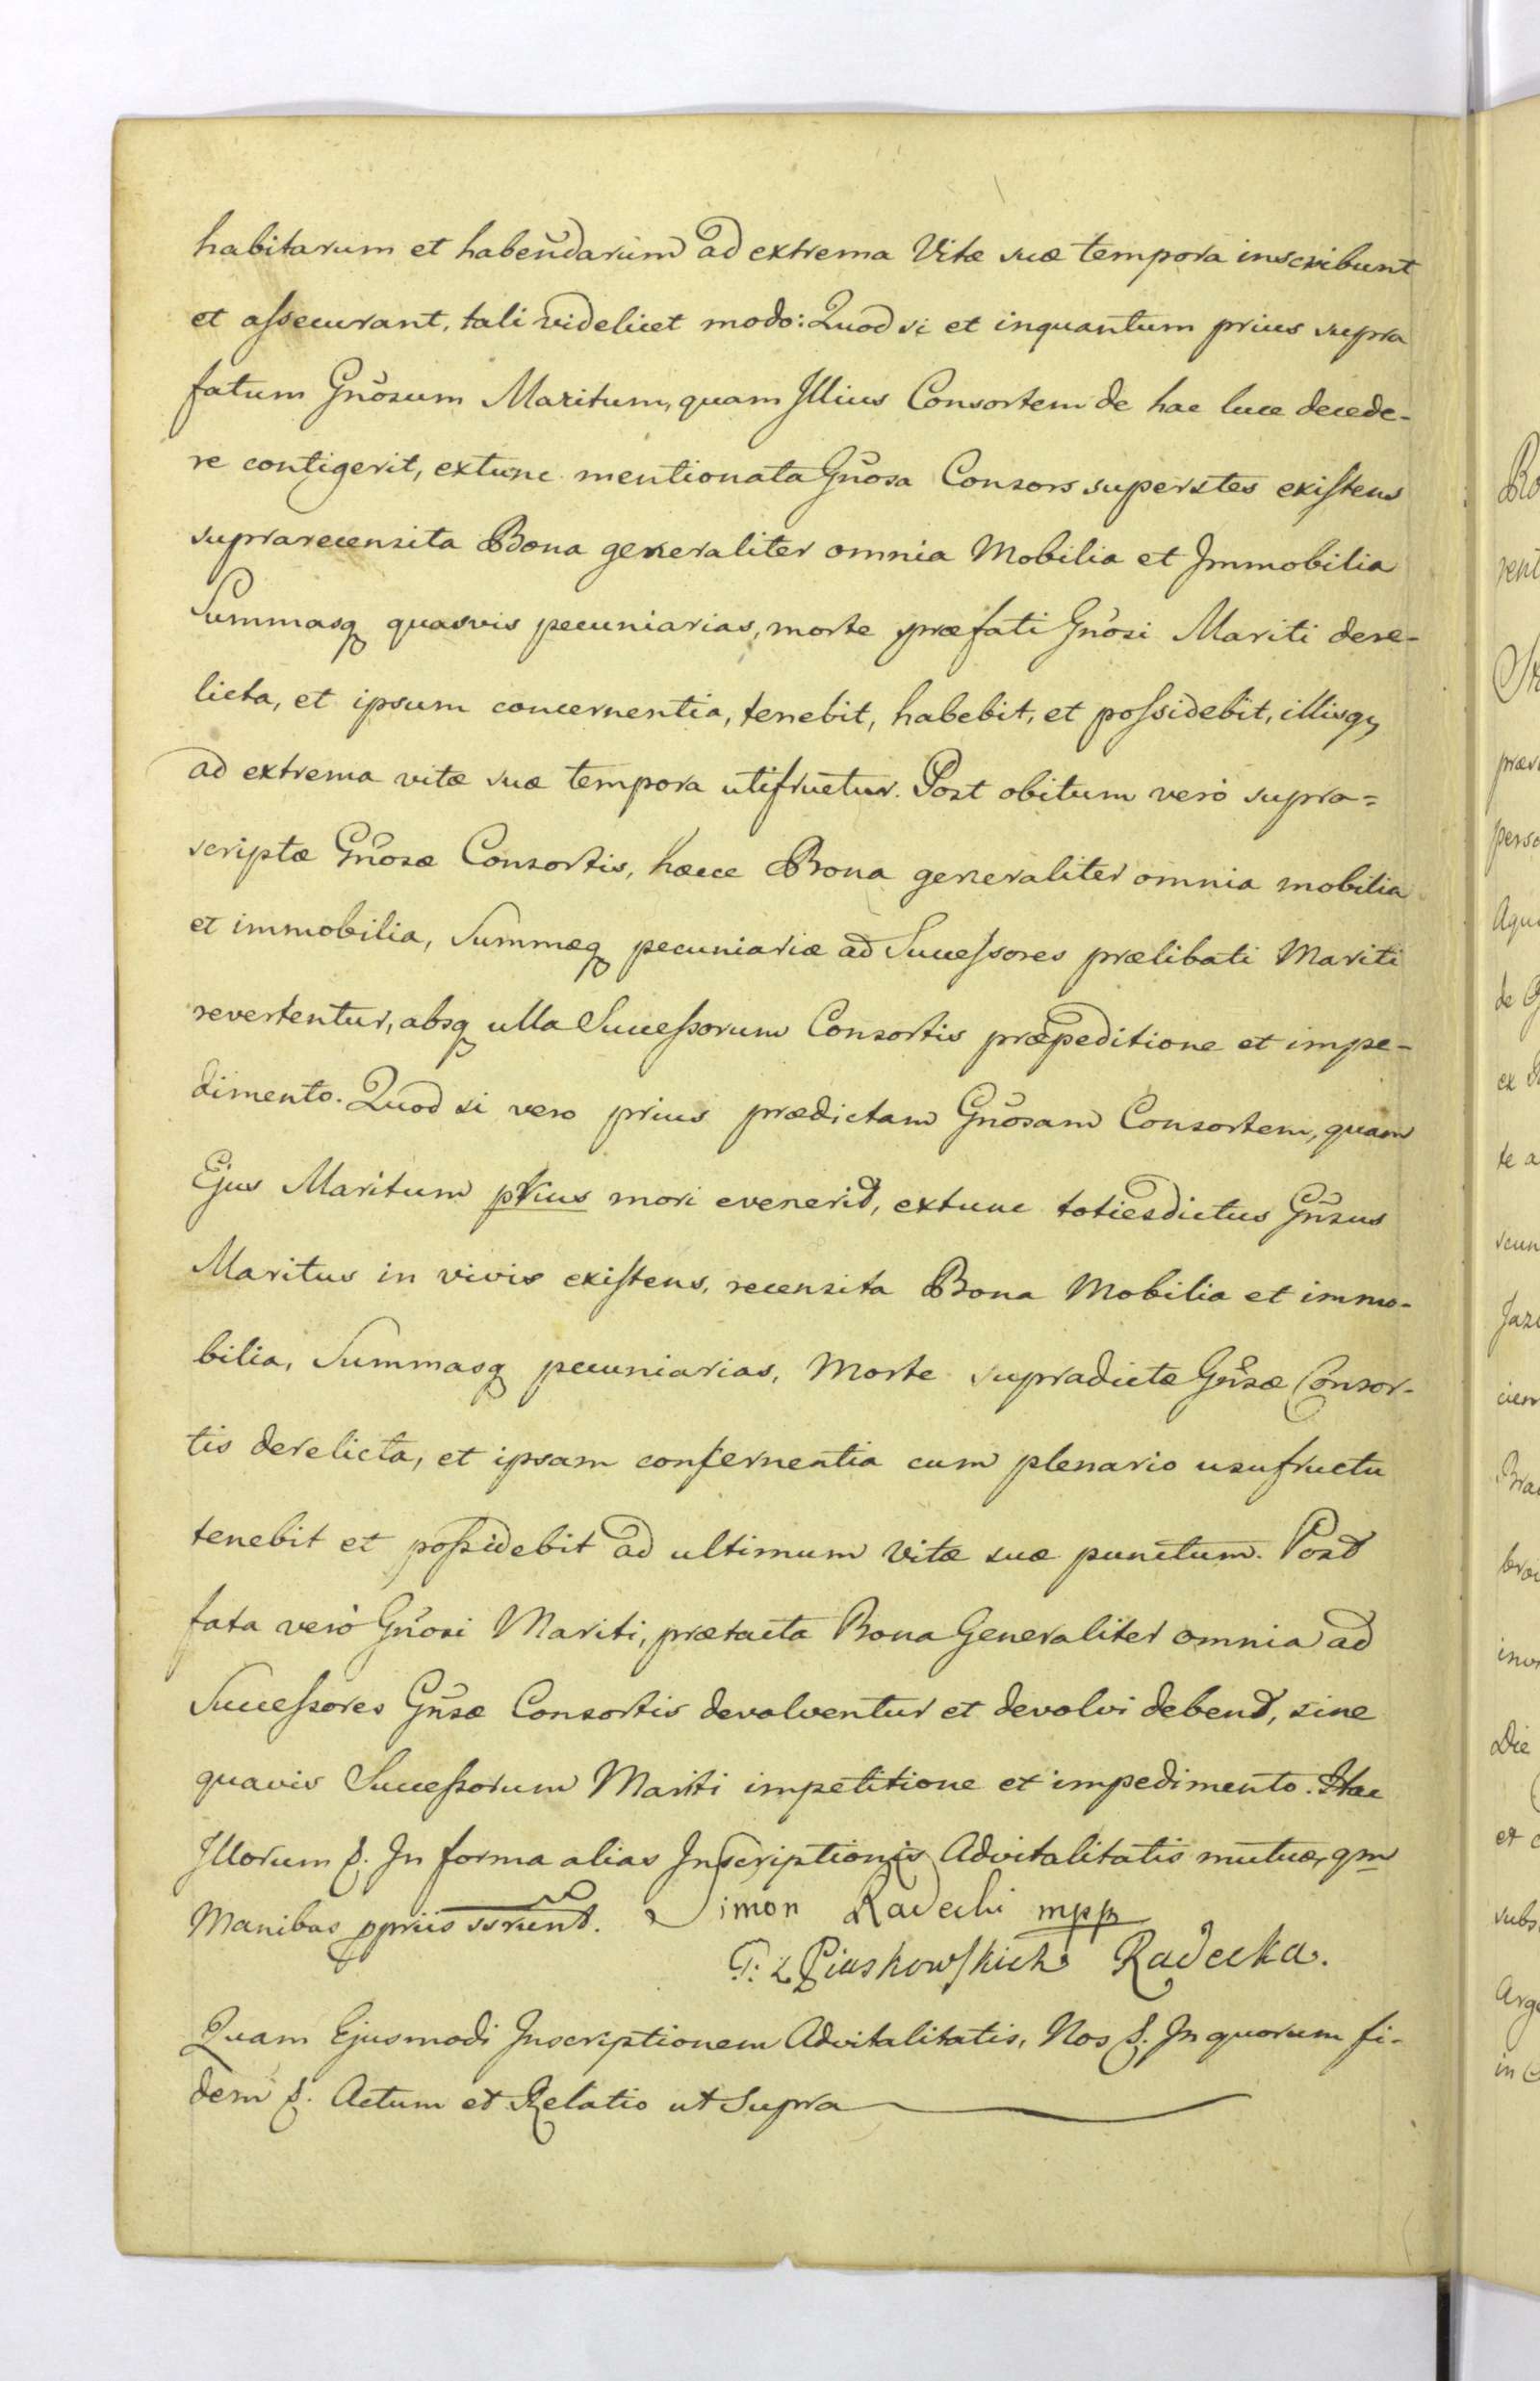 habitarum et habendarum ad extrema Vitæ suæ tempora inscribunt
et assecurant, tali videlicet modo: Quod si et inquantum prius supra
fatum Gnosum Maritum, quam Illius Consortem de hac luce decede-
re contigerit, extunc mentionata Gnosa Consors superstes existens
suprarecensita Bona generaliter omnia Mobilia et Immobilia
Summasq quasvis pecuniarias, morte præfati Gnosi Mariti dere-
licta, et ipsum concernentia, tenebit, habebit, et possidebit, illisq
ad extrema vitæ suæ tempora utifruetur. Post obitum verò supra=
scriptæ Gnosæ Consortis, hæcce Bona generaliter omnia mobilia
et immobilia, Summæq pecuniariæ ad Successores prælibati Mariti
revertentur, absq ulla Successorum Consortis præpeditione et impe-
dimento. Quod si vero prius prædictam Gnosam Consortem, quam
Ejus Maritum prius mori evenerit, extunc totiesdictus Gnsus
Maritus in vivis existens, recensita Bona Mobilia et immo-
bilia, Summasq pecuniarias, Morte supradictæ Gnsæ Consor-
tis derelicta, et ipsam concernentia cum plenario usufructu
tenebit et possidebit ad ultimum Vitæ suæ punctum. Post
fata verò Gnosi Mariti, prætacta Bona Generaliter omnia ad
Successores Gnsæ Consortis devolventur et devolvi debent, sine
quavis Successorum Mariti impetitione et impedimento. Hac
Illorum &. In forma alias Inscriptionis Advitalitatis mutuæ, qm
Manibus ppriis ssrunt. Simon Radecki mpp
T: z Piaskowskich Radecka.
Quam Ejusmodi Inscriptionem Advitalitatis, Nos &. In quorum fi-
dem &. Actum et Relatio ut Supra